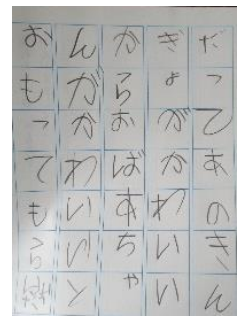 だってあのきん
ぎょがかわいい
からおばあちゃ
んがかわいいと
おもってもら